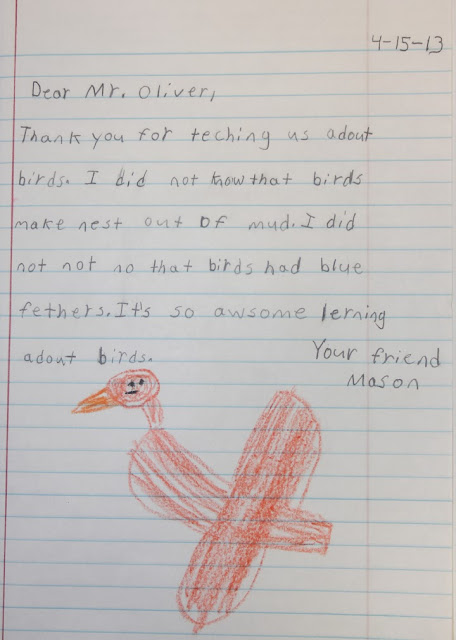 4-15-13
Dear Mr. Oliver,
Thank you for teching us adout
birds. I did not know that birds
make nest out of mud. I did
not not no that birds had blue
fethers. It's so awsome lerning
adout birds.
Your friend
Mason